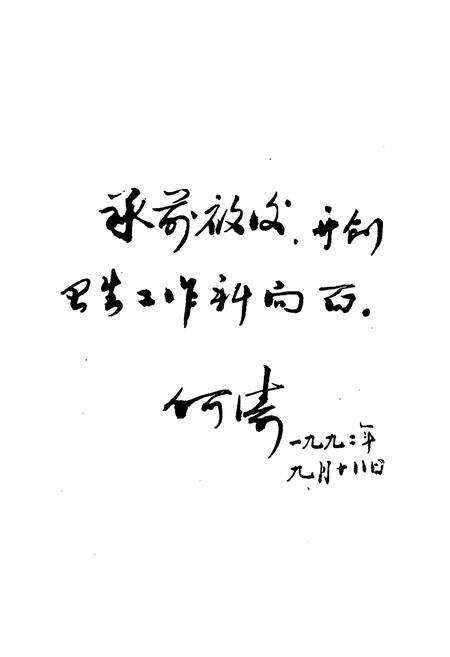 承前启后，开创
卫生工作新局面。
何涛
一九九二年
九月十八日